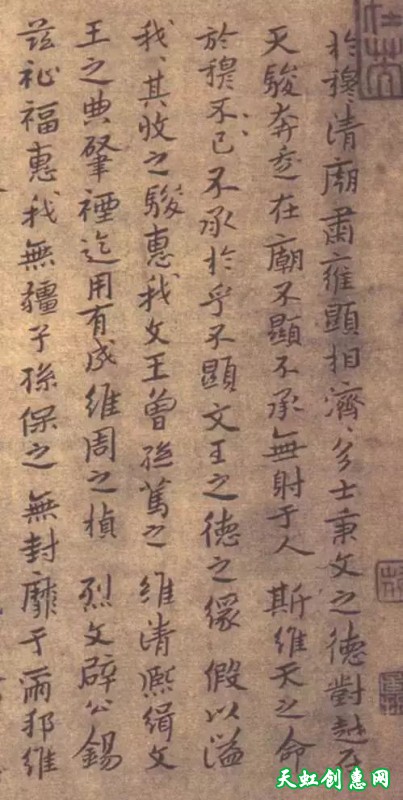 於穆〻清廟肅雍顯相濟〻多士秉文之德對越在
天駿奔走在廟不顯不承無射于人 斯維天之命
於穆不已不承於乎不顯文王之德之 假以溢
我〻其收之駿惠我文王曾孫篤之 維清熙緝文
王之典肇禋迄用有成維周之楨 烈文辟公錫
茲祉福惠我無疆子孫保之無封靡于爾邦維
天虹创惠网